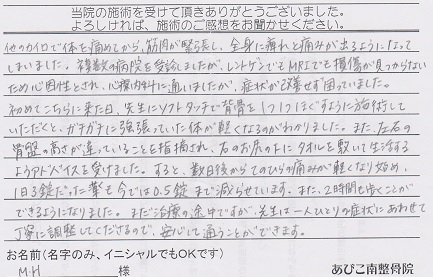 当院の施術を受けて頂きありがとうございました。
よろしければ、施術のご感想をお聞かせください。
他のカイロで体を痛めてから、筋肉が緊張し、全身に痺れと痛みが出るようになって
しまいました。複数の病院を受診しましたが、レントゲンでもMRIでも損傷が見つからない
ため心因性とされ、心療内科に通いましたが、症状が改善せず困っていました。
初めてこちらに来た日、先生にソフトタッチで背骨を1つ1つほぐすように施術して
いただくと、ガチガチに強張っていた体が軽くなるのがわかりました。また、左右の
骨盤の高さが違っていることを指摘され、右のお尻の下にタオルを敷いて生活する
ようアドバイスを受けました。すると、数日後からてのひらの痛みが軽くなり始め、
1日3錠だった薬も今では0.5錠まで減らせています。また、2時間も歩くことが
できるようになりました。まだ治療の途中ですが、先生は一人ひとりの症状にあわせて
丁寧に調整してくださるので、安心して通うことができます。
お名前(名字のみ、イニシャルでもOKです)
M.H 様
あびこ南整骨院